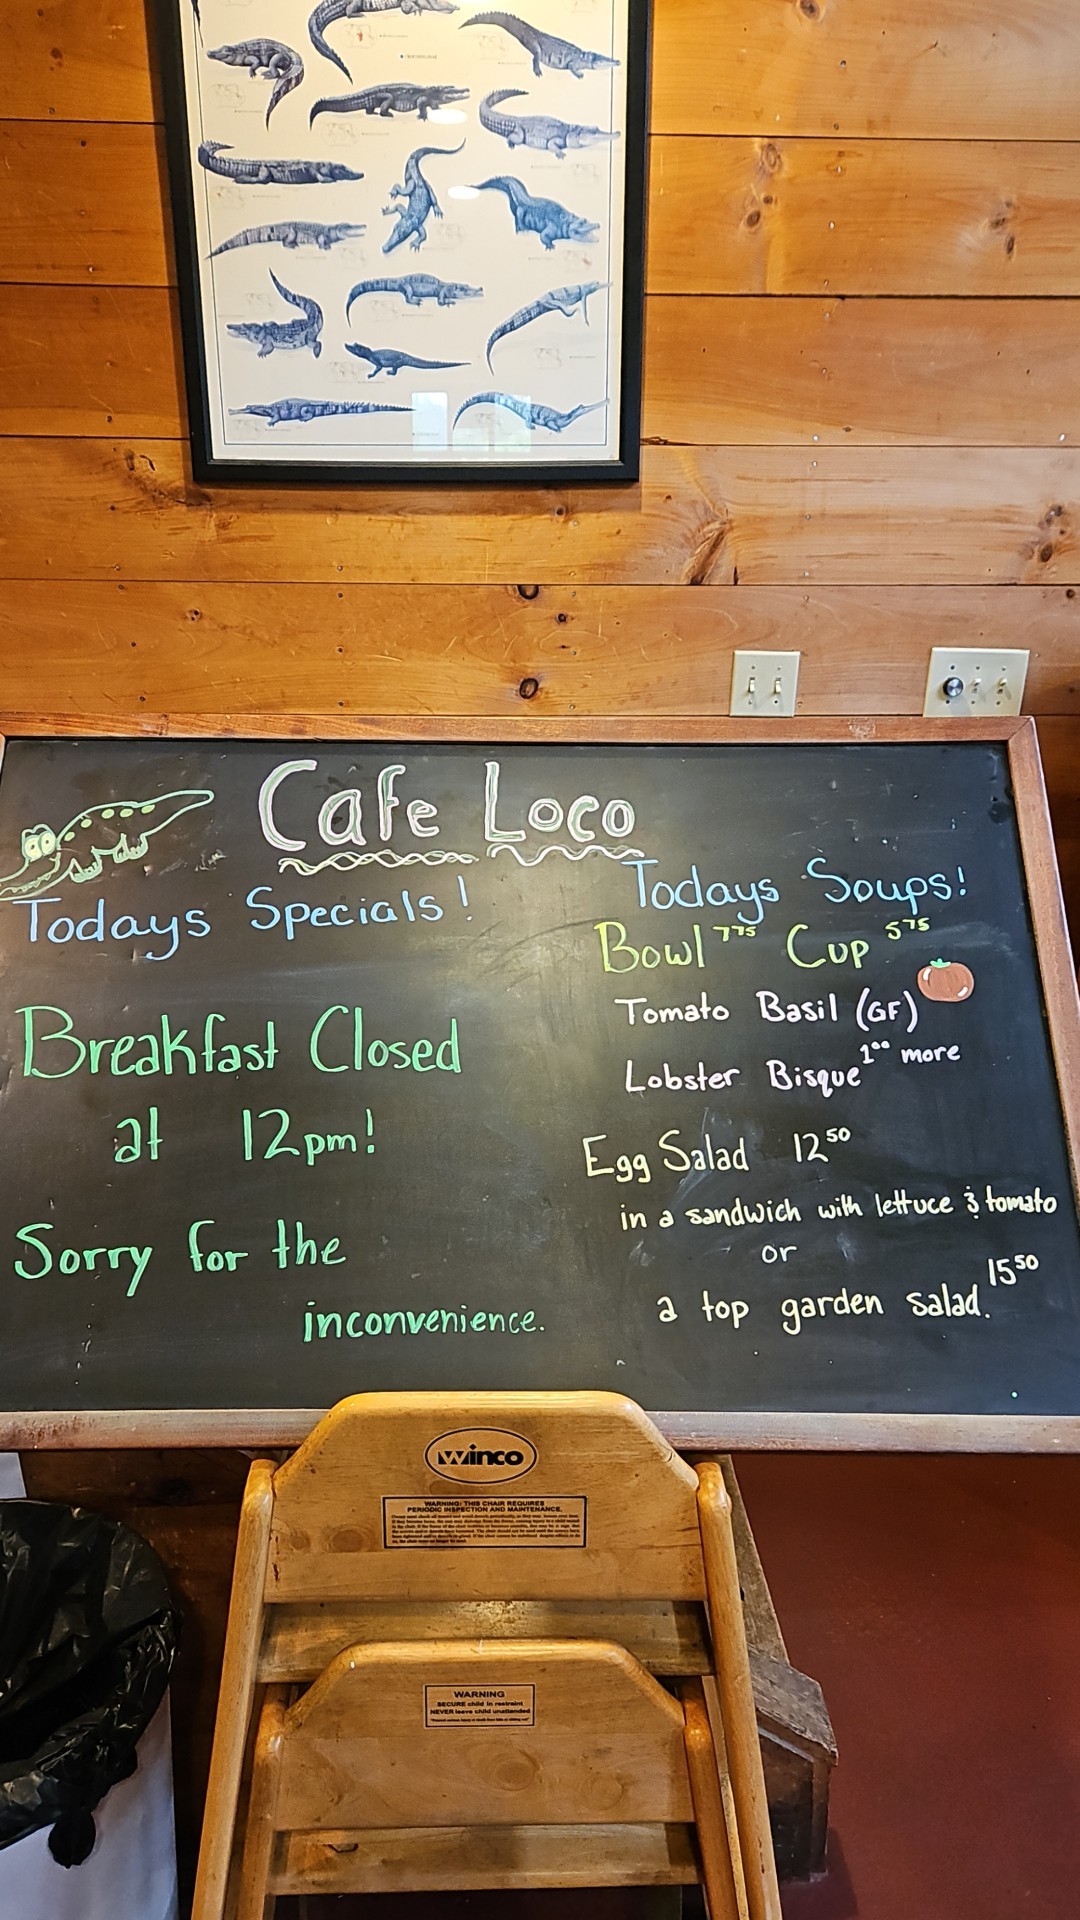 Cafe Loco
Todays Specials!
Breakfast Closed
at 12pm!
Sorry for the
inconvenience.
Todays Soups!
Bowl 7 75 Cup 5 75
Tomato Basil (GF)
Lobster Bisque 1 00 more
Egg Salad 12 50
in a sandwich with lettuce & tomato
or
a top garden salad. 15 50
winco
WARNING: THIS CHAIR REQUIRES
PERIODIC INSPECTION AND MAINTENANCE.
WARNING
SECURE child in restraint
NEVER leave child unattended